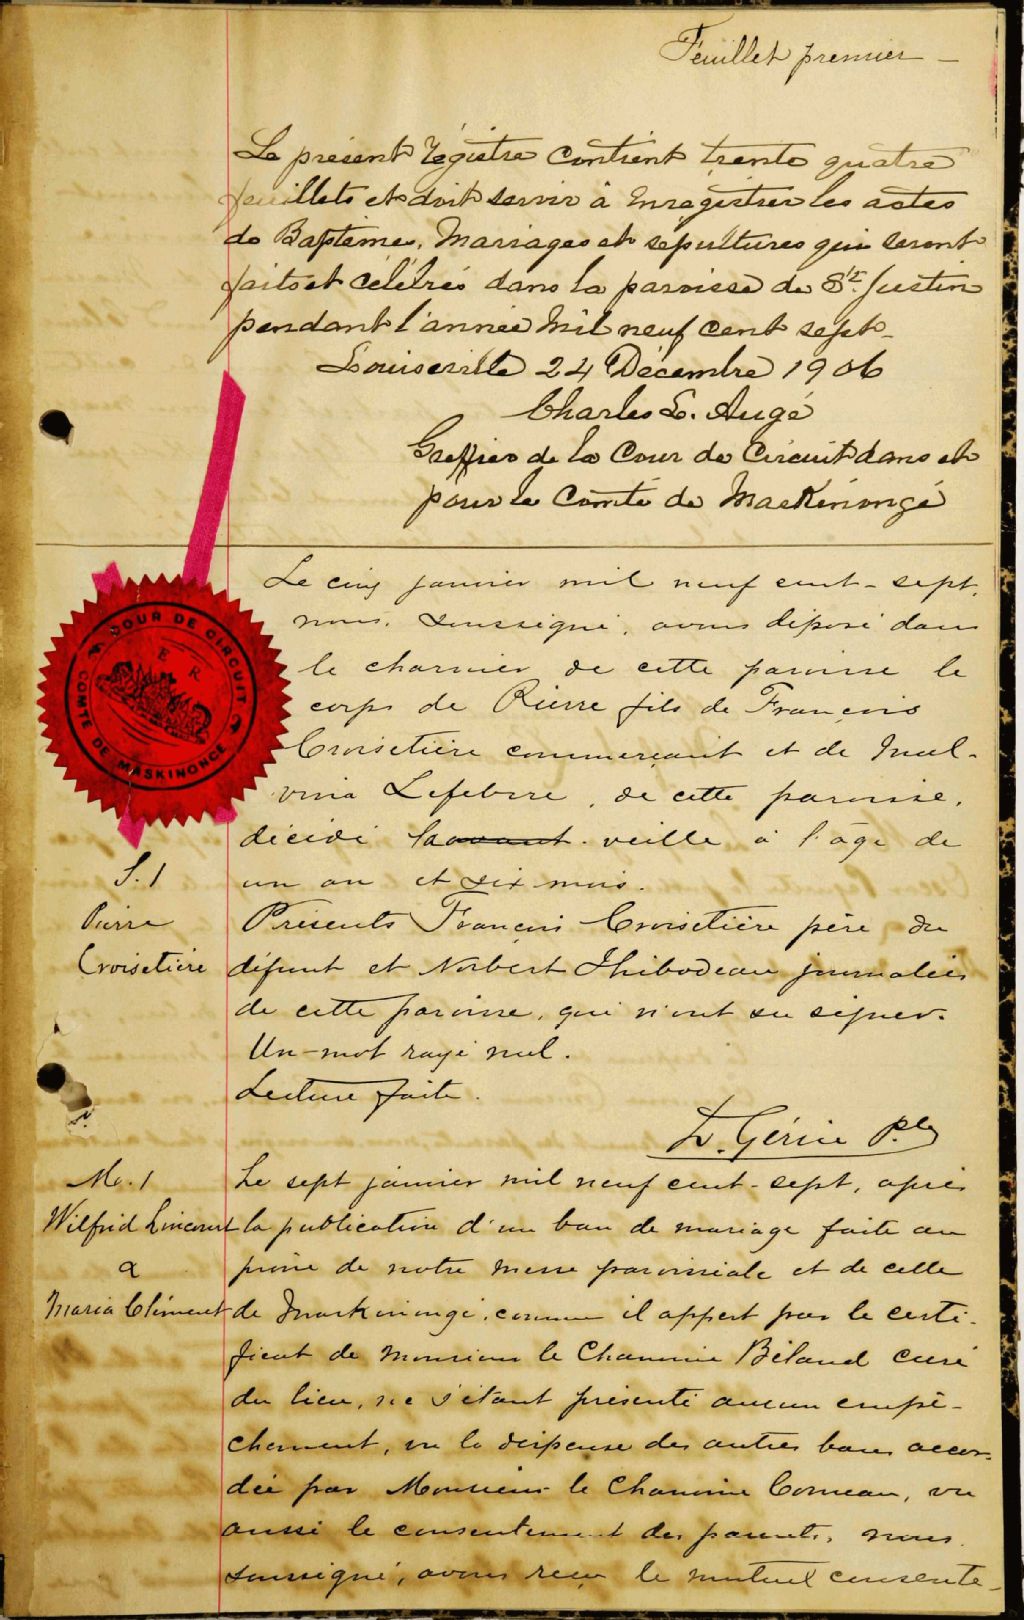 Feuillet premier —
Le présent régistre contient trente quatre
feuillets et doit servir à enrégistrer les actes
de Baptême, Mariages et sepultures qui seront
faits et célébrés dans la paroisse de St. Justin
pendant l'année mil neuf cent sept —
Louiseville 24 Décembre 1906
Charles L. Augé
Greffier de la Cour de Circuit dans et
pour le Comté de Maskinongé
COUR DE CIRCUIT
E R
COMTÉ DE MASKINONGÉ
Le cinq janvier mil neuf cent-sept,
nous, soussigné, avons déposé dans
le charnier de cette paroisse le
corps de Pierre fils de François
Croisetière commerçant et de Mal-
vina Lefebvre, de cette paroisse,
décédé l'avant-veille à l'âge de
S. 1
un an et six mois.
Pierre
Présents François Croisetière père du
Croisetière
défunt et Norbert Thibodeau journalier
de cette paroisse, qui n'ont su signer.
Un mot rayé nul.
Lecture faite.
D. Gérin Ptre
M. 1
Le sept janvier mil neuf cent-sept, après
Wilfrid Lincourt
la publication d'un ban de mariage faite au
&
prône de notre messe paroissiale et de celle
Maria Clément
de Maskinongé, comme il appert par le certi-
ficat de Monsieur le Chanoine Béland curé
du lieu, ne s'étant présenté aucun empê-
chement, vu la dispense des autres bans accor-
dée par Monsieur le Chanoine Comeau, vu
aussi le consentement des parents, nous
soussigné, avons reçu le mutuel consente-